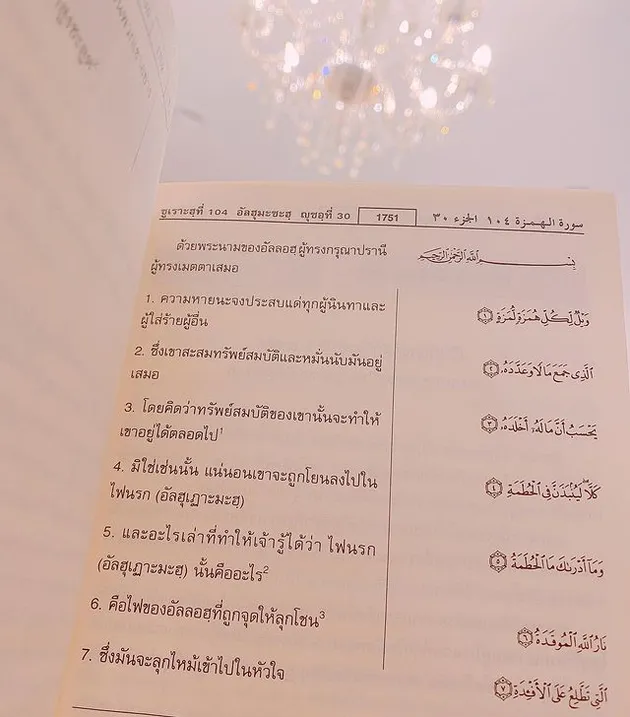 ซูเราะฮฺที่ 104 อัลฮุมะซะฮฺ ญุซอฺที่ 30 1751 سورة الهمزة ١٠٤ الجزء ٣٠
ด้วยพระนามของอัลลอฮฺ ผู้ทรงกรุณาปรานี
ผู้ทรงเมตตาเสมอ
بِسْمِ اللَّهِ الرَّحْمَٰنِ الرَّحِيمِ
1. ความหายนะจงประสบแด่ทุกผู้นินทาและ
ผู้ใส่ร้ายผู้อื่น
وَيْلٌ لِّكُلِّ هُمَزَةٍ لُّمَزَةٍ ١
2. ซึ่งเขาสะสมทรัพย์สมบัติและหมั่นนับมันอยู่
เสมอ
الَّذِي جَمَعَ مَالًا وَعَدَّدَهُ ٢
3. โดยคิดว่าทรัพย์สมบัติของเขานั้นจะทำให้
เขาอยู่ได้ตลอดไป¹
يَحْسَبُ أَنَّ مَالَهُ أَخْلَدَهُ ٣
4. มิใช่เช่นนั้น แน่นอนเขาจะถูกโยนลงไปใน
ไฟนรก (อัลฮุเฏาะมะฮฺ)
كَلَّا لَيُنبَذَنَّ فِي الْحُطَمَةِ ٤
5. และอะไรเล่าที่ทำให้เจ้ารู้ได้ว่า ไฟนรก
(อัลฮุเฏาะมะฮฺ) นั้นคืออะไร²
وَمَا أَدْرَىٰكَ مَا الْحُطَمَةُ ٥
6. คือไฟของอัลลอฮฺที่ถูกจุดให้ลุกโชน³
نَارُ اللَّهِ الْمُوقَدَةُ ٦
7. ซึ่งมันจะลุกไหม้เข้าไปในหัวใจ
الَّتِي تَطَّلِعُ عَلَى الْأَفْئِدَةِ ٧